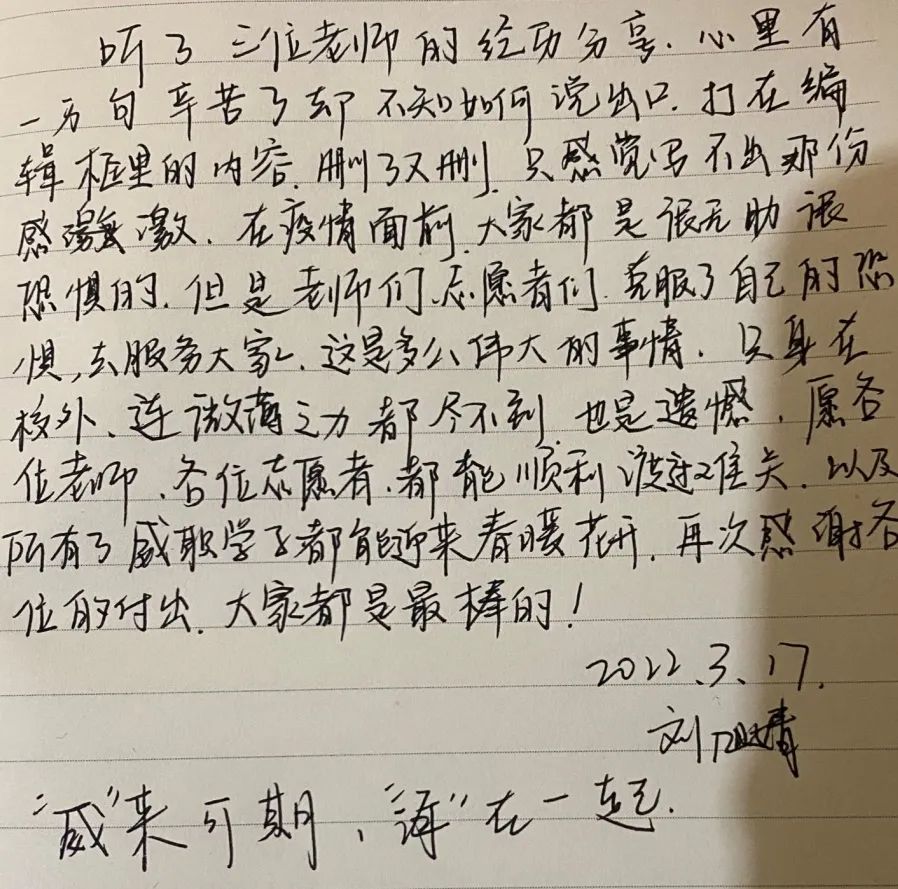 听了三位老师的经历分享.心里有
一万句辛苦了却不知如何说出口.打在编
辑框里的内容.删了又删.只感觉写不出那份
感激.在疫情面前.大家都是很无助很
恐惧的.但是老师们、志愿者们.克服了自己的恐
惧,去服务大家.这是多么伟大的事情.只身在
校外、连微薄之力都尽不到.也是遗憾.愿各
位老师.各位志愿者.都能顺利渡过难关.以及
所有了威职学子都能迎来春暖花开.再次感谢各
位的付出.大家都是最棒的!
2022.3.17.
刘 青
“威”来可期,“海”在一起.